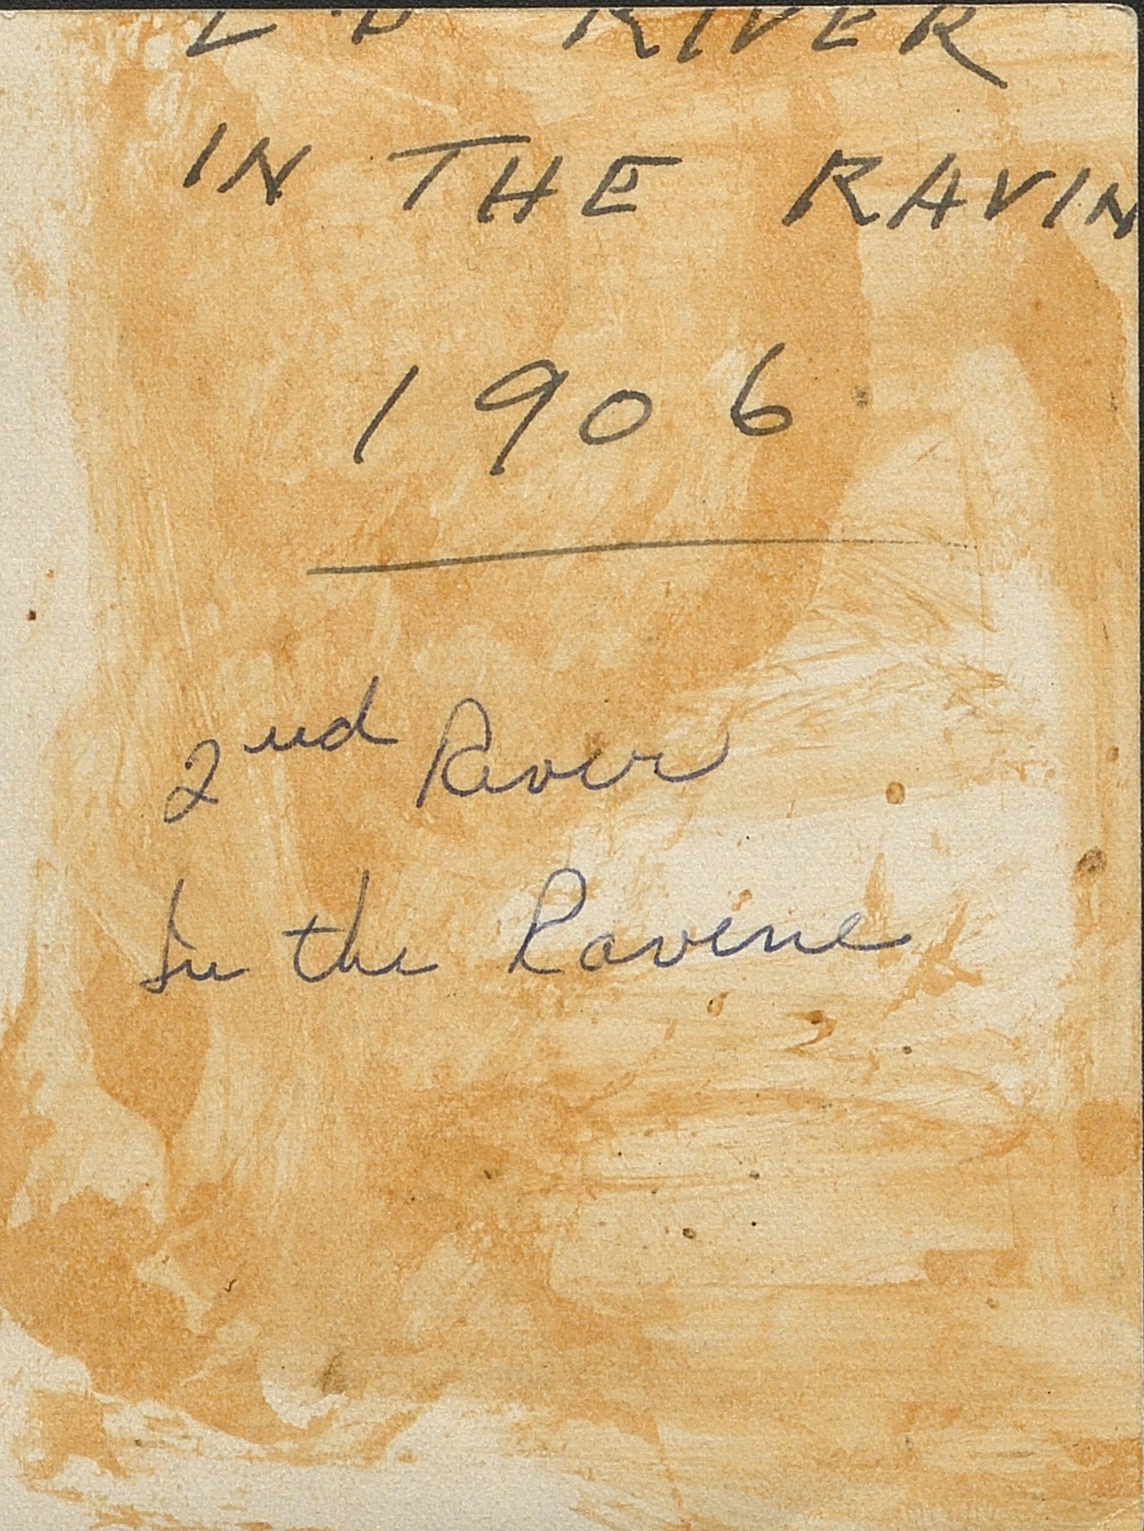 RIVER
IN THE RAVIN
1906
2nd River
In the Ravine